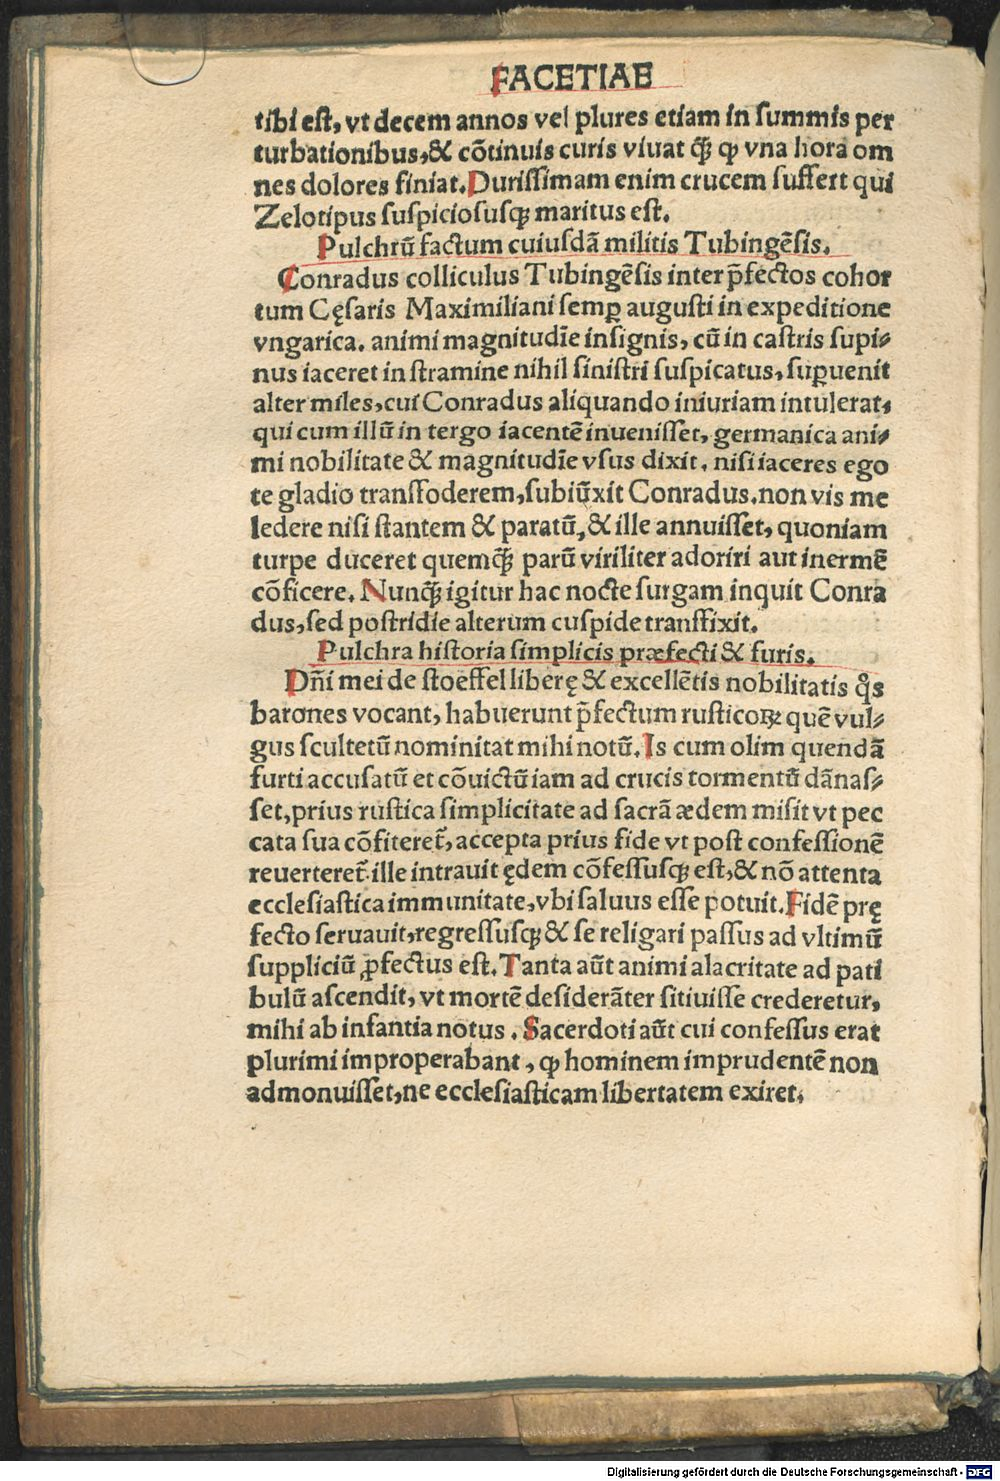 FACETIAE
tibi eſt, vt decem annos vel plures etiam in ſummis per
turbationibus,& cõtinuis curis viuat ꝗ̃ ꝙ vna hora om
nes dolores finiat. Duriſſimam enim crucem ſuffert qui
Zelotipus ſuspicioſusꝗ maritus eſt.
Pulchrũ factum cuiuſdã militis Tubingẽſis.
Conradus colliculus Tubingẽſis inter p̃fectos cohor
tum Cęſaris Maximiliani ſemꝑ auguſti in expeditione
vngarica. animi magnitudĩe inſignis, cũ in caſtris ſupi⸗
nus iaceret in ſtramine nihil ſiniſtri ſuſpicatus, ſuꝑuenit
alter miles, cui Conradus aliquando iniuriam intulerat,
qui cum illũ in tergo iacentẽ inueniſſet, germanica ani⸗
mi nobilitate & magnitudĩe vſus dixit. niſi iaceres ego
te gladio transfoderem, ſubiũxit Conradus. non vis me
ledere niſi ſtantem & paratũ, & ille annuiſſet, quoniam
turpe duceret quemꝗ̃ parũ viriliter adoriri aut inermẽ
cõficere. Nunꝗ̃ igitur hac nocte ſurgam inquit Conra
dus, ſed poſtridie alterum cuſpide transfixit.
Pulchra hiſtoria ſimplicis præfecti & furis.
Dñi mei de ſtoeffel liberę & excellẽtis nobilitatis ꝗ̊s
barones vocant, habuerunt p̃fectum ruſticoꝝ quẽ vul⸗
gus ſcultetũ nominitat mihi notũ. Is cum olim quendã
furti accuſatũ et cõuictũ iam ad crucis tormentũ dãnaſ⸗
ſet, prius ruſtica ſimplicitate ad ſacrã ædem miſit vt pec
cata ſua cõfiteret᷑, accepta prius fide vt poſt confeſſionẽ
reuerteret᷑. ille intrauit ędem cõfeſſusꝗ eſt, & nõ attenta
eccleſiaſtica immunitate, vbi ſaluus eſſe potuit. Fidẽ prę
fecto ſeruauit, regreſſusꝗ & ſe religari paſſus ad vltimũ
ſuppliciũ ꝓfectus eſt. Tanta aũt animi alacritate ad pati
bulũ aſcendit, vt mortẽ deſiderãter ſitiuiſſe crederetur,
mihi ab infantia notus. Sacerdoti aũt cui confeſſus erat
plurimi improperabant, ꝙ hominem imprudentẽ non
admonuiſſet, ne eccleſiaſticam libertatem exiret.
Digitalisierung gefördert durch die Deutsche Forschungsgemeinschaft - DFG